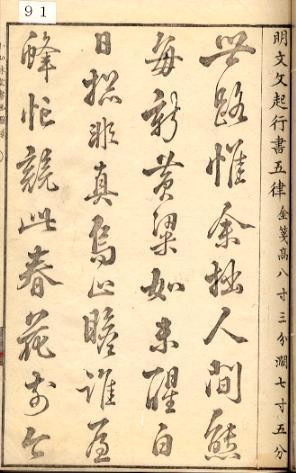 91
明文文起行書五律 金箋高八寸三分濶七寸五分
世路惟余拙人間態
每新黃粱如未醒白
日總非真烏止瞻誰屋
蜂忙競此春花